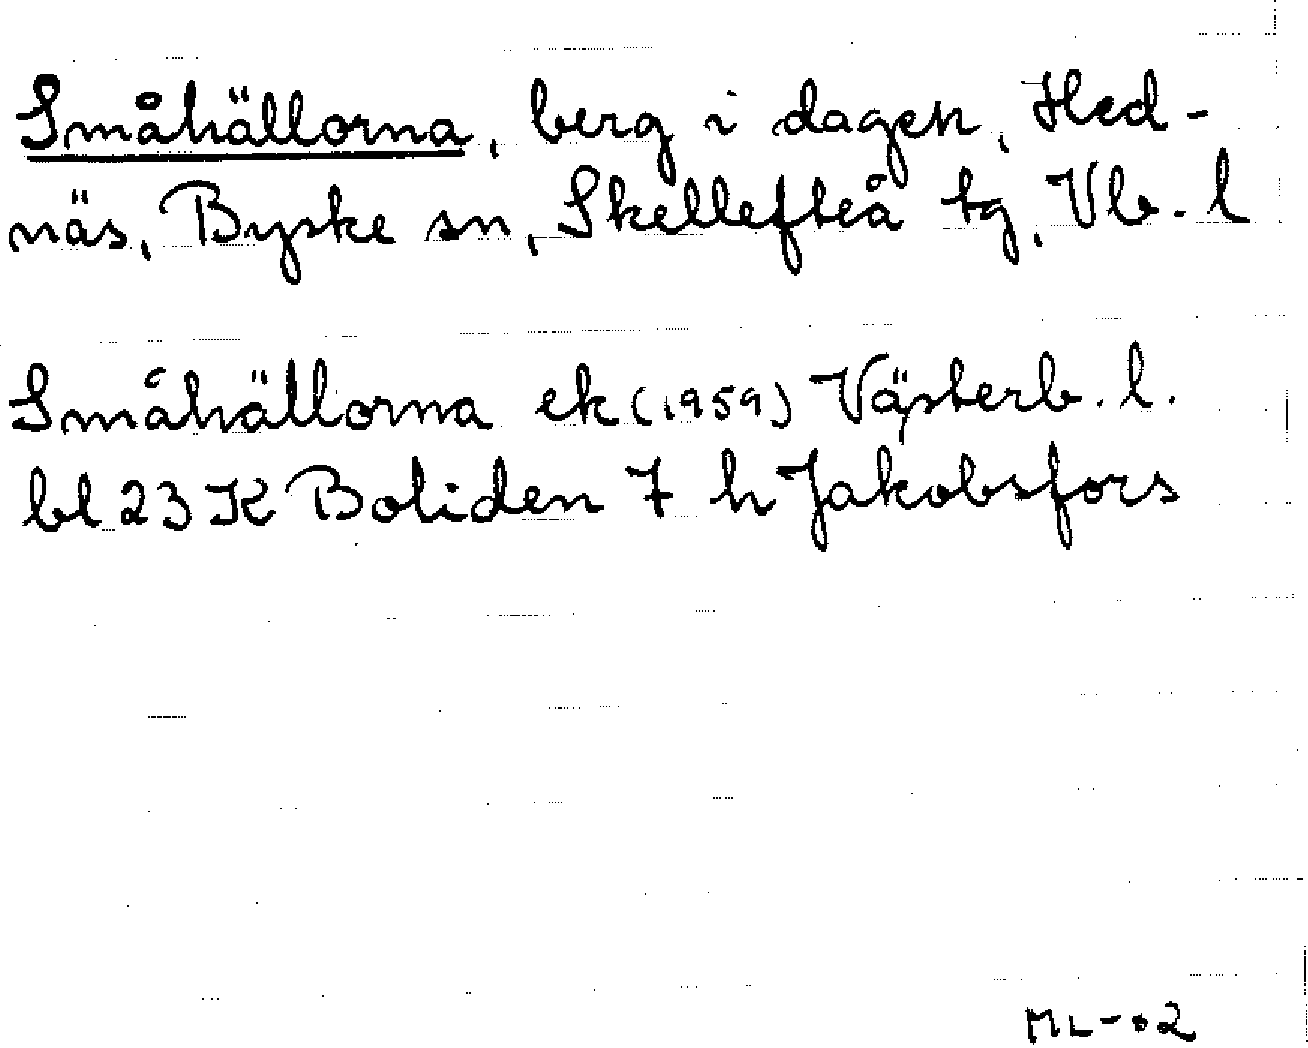 Småhällorna, berg i dagen, Hed-
näs, Byske sn, Skellefteå tg, Vb. l
Småhällorna ek (1959) Västerb. l.
bl 23 K Boliden 7 h Jakobsfors
ML-02